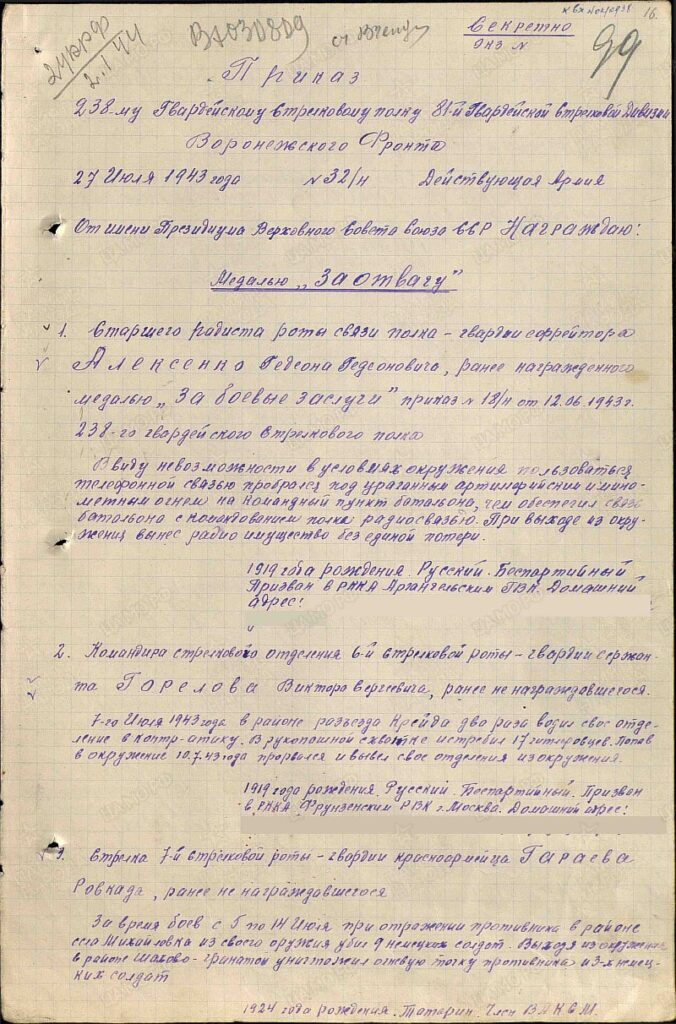 к вх №
16.
Секретно
экз №
99
24 крф
2.1.44
П р и к а з
238-му Гвардейскому Стрелковому полку 81-й Гвардейской Стрелковой Дивизии
Воронежского Фронта
27 Июля 1943 года № 32/н Действующая Армия
От имени Президиума Верховного Совета Союза ССР Награждаю:
Медалью „За отвагу"
1. Старшего радиста роты связи полка – гвардии ефрейтора
Алексенко Гедеона Гедеоновича, ранее награжденного
медалью „За боевые заслуги" приказ № 18/н от 12.06.1943 г.
238-го гвардейского Стрелкового полка
Ввиду невозможности в условиях окружения пользоваться
телефонной связью пробрался под ураганным артиллерийским и мино-
метным огнем на командный пункт батальона, чем обеспечил связь
батальона с командованием полка радиосвязью. При выходе из окру-
жения вынес радио имущество без единой потери.
1919 года рождения. Русский. Беспартийный
Призван в РККА Архангельским ГВК. Домашний
адрес:
2. Командира стрелкового отделения 6-й стрелковой роты – гвардии сержан-
та Горелова Виктора Сергеевича, ранее не награждавшегося.
7-го Июля 1943 года в районе разъезда Крейда два раза водил свое отде-
ление в контр-атику. В рукопашной схватке истребил 17 гитлеровцев. Попав
в окружение 10.7.43 года прорвался и вывел свое отделения из окружения.
1919 года рождения. Русский. Беспартийный. Призван
в РККА Фрунзенским РВК г. Москва. Домашний адрес:
3. Стрелка 7-й стрелковой роты – гвардии красноармейца Гараева
Ровкада, ранее не награждавшегося
За время боев с 5 по 14 Июля при отражении противника в районе
села Михайловка из своего оружия убил 9 немецких солдат. Выходя из окружения
в районе Шахово – гранатой уничтожил огневую точку противника и 3-х немец-
ких солдат
1924 года рождения. Татарин. Член ВЛКСМ.